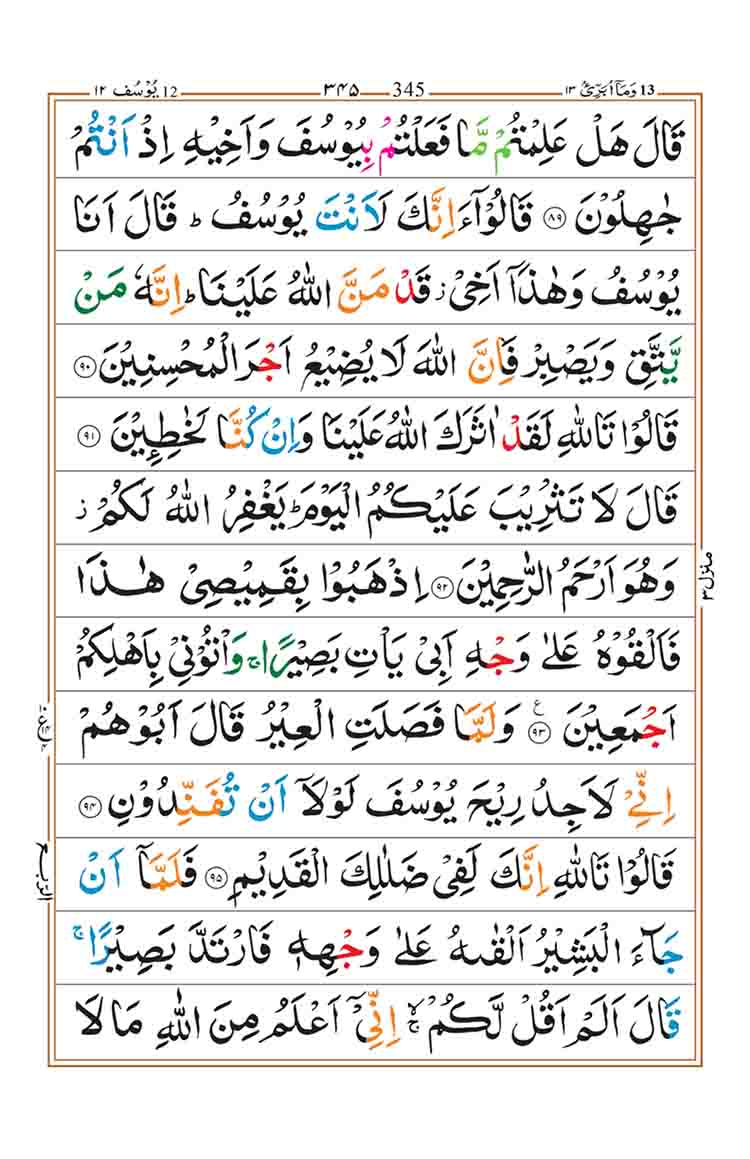 13 وَمَاۤ اُبَرِّئُ ۱۳ 345 ۳۴۵ 12 یُوْسُف ۱۲
قَالَ هَلْ عَلِمْتُمْ مَّا فَعَلْتُمْ بِیُوْسُفَ وَاَخِیْهِ اِذْ اَنْتُمْ
جٰهِلُوْنَ ۸۹ قَالُوْۤا ءَاِنَّكَ لَاَنْتَ یُوْسُفُ ؕ قَالَ اَنَا
یُوْسُفُ وَهٰذَاۤ اَخِیْ ؗ قَدْ مَنَّ اللّٰهُ عَلَیْنَا ؕ اِنَّهٗ مَنْ
یَّتَّقِ وَیَصْبِرْ فَاِنَّ اللّٰهَ لَا یُضِیْعُ اَجْرَ الْمُحْسِنِیْنَ ۹۰
قَالُوْا تَاللّٰهِ لَقَدْ اٰثَرَكَ اللّٰهُ عَلَیْنَا وَاِنْ كُنَّا لَخٰطِـِٕیْنَ ۹۱
قَالَ لَا تَثْرِیْبَ عَلَیْكُمُ الْیَوْمَ ؕ یَغْفِرُ اللّٰهُ لَكُمْ ؗ
وَهُوَ اَرْحَمُ الرّٰحِمِیْنَ ۹۲ اِذْهَبُوْا بِقَمِیْصِیْ هٰذَا
فَاَلْقُوْهُ عَلٰی وَجْهِ اَبِیْ یَاْتِ بَصِیْرًا ۚ وَاْتُوْنِیْ بِاَهْلِكُمْ
اَجْمَعِیْنَ ۹۳ ع وَلَمَّا فَصَلَتِ الْعِیْرُ قَالَ اَبُوْهُمْ
اِنِّیْ لَاَجِدُ رِیْحَ یُوْسُفَ لَوْلَاۤ اَنْ تُفَنِّدُوْنِ ۹۴
قَالُوْا تَاللّٰهِ اِنَّكَ لَفِیْ ضَلٰلِكَ الْقَدِیْمِ ۹۵ فَلَمَّاۤ اَنْ
جَآءَ الْبَشِیْرُ اَلْقٰىهُ عَلٰی وَجْهِهٖ فَارْتَدَّ بَصِیْرًا ۚ
قَالَ اَلَمْ اَقُلْ لَّكُمْ ۚۙ اِنِّیْۤ اَعْلَمُ مِنَ اللّٰهِ مَا لَا
منزل ۳
الربع